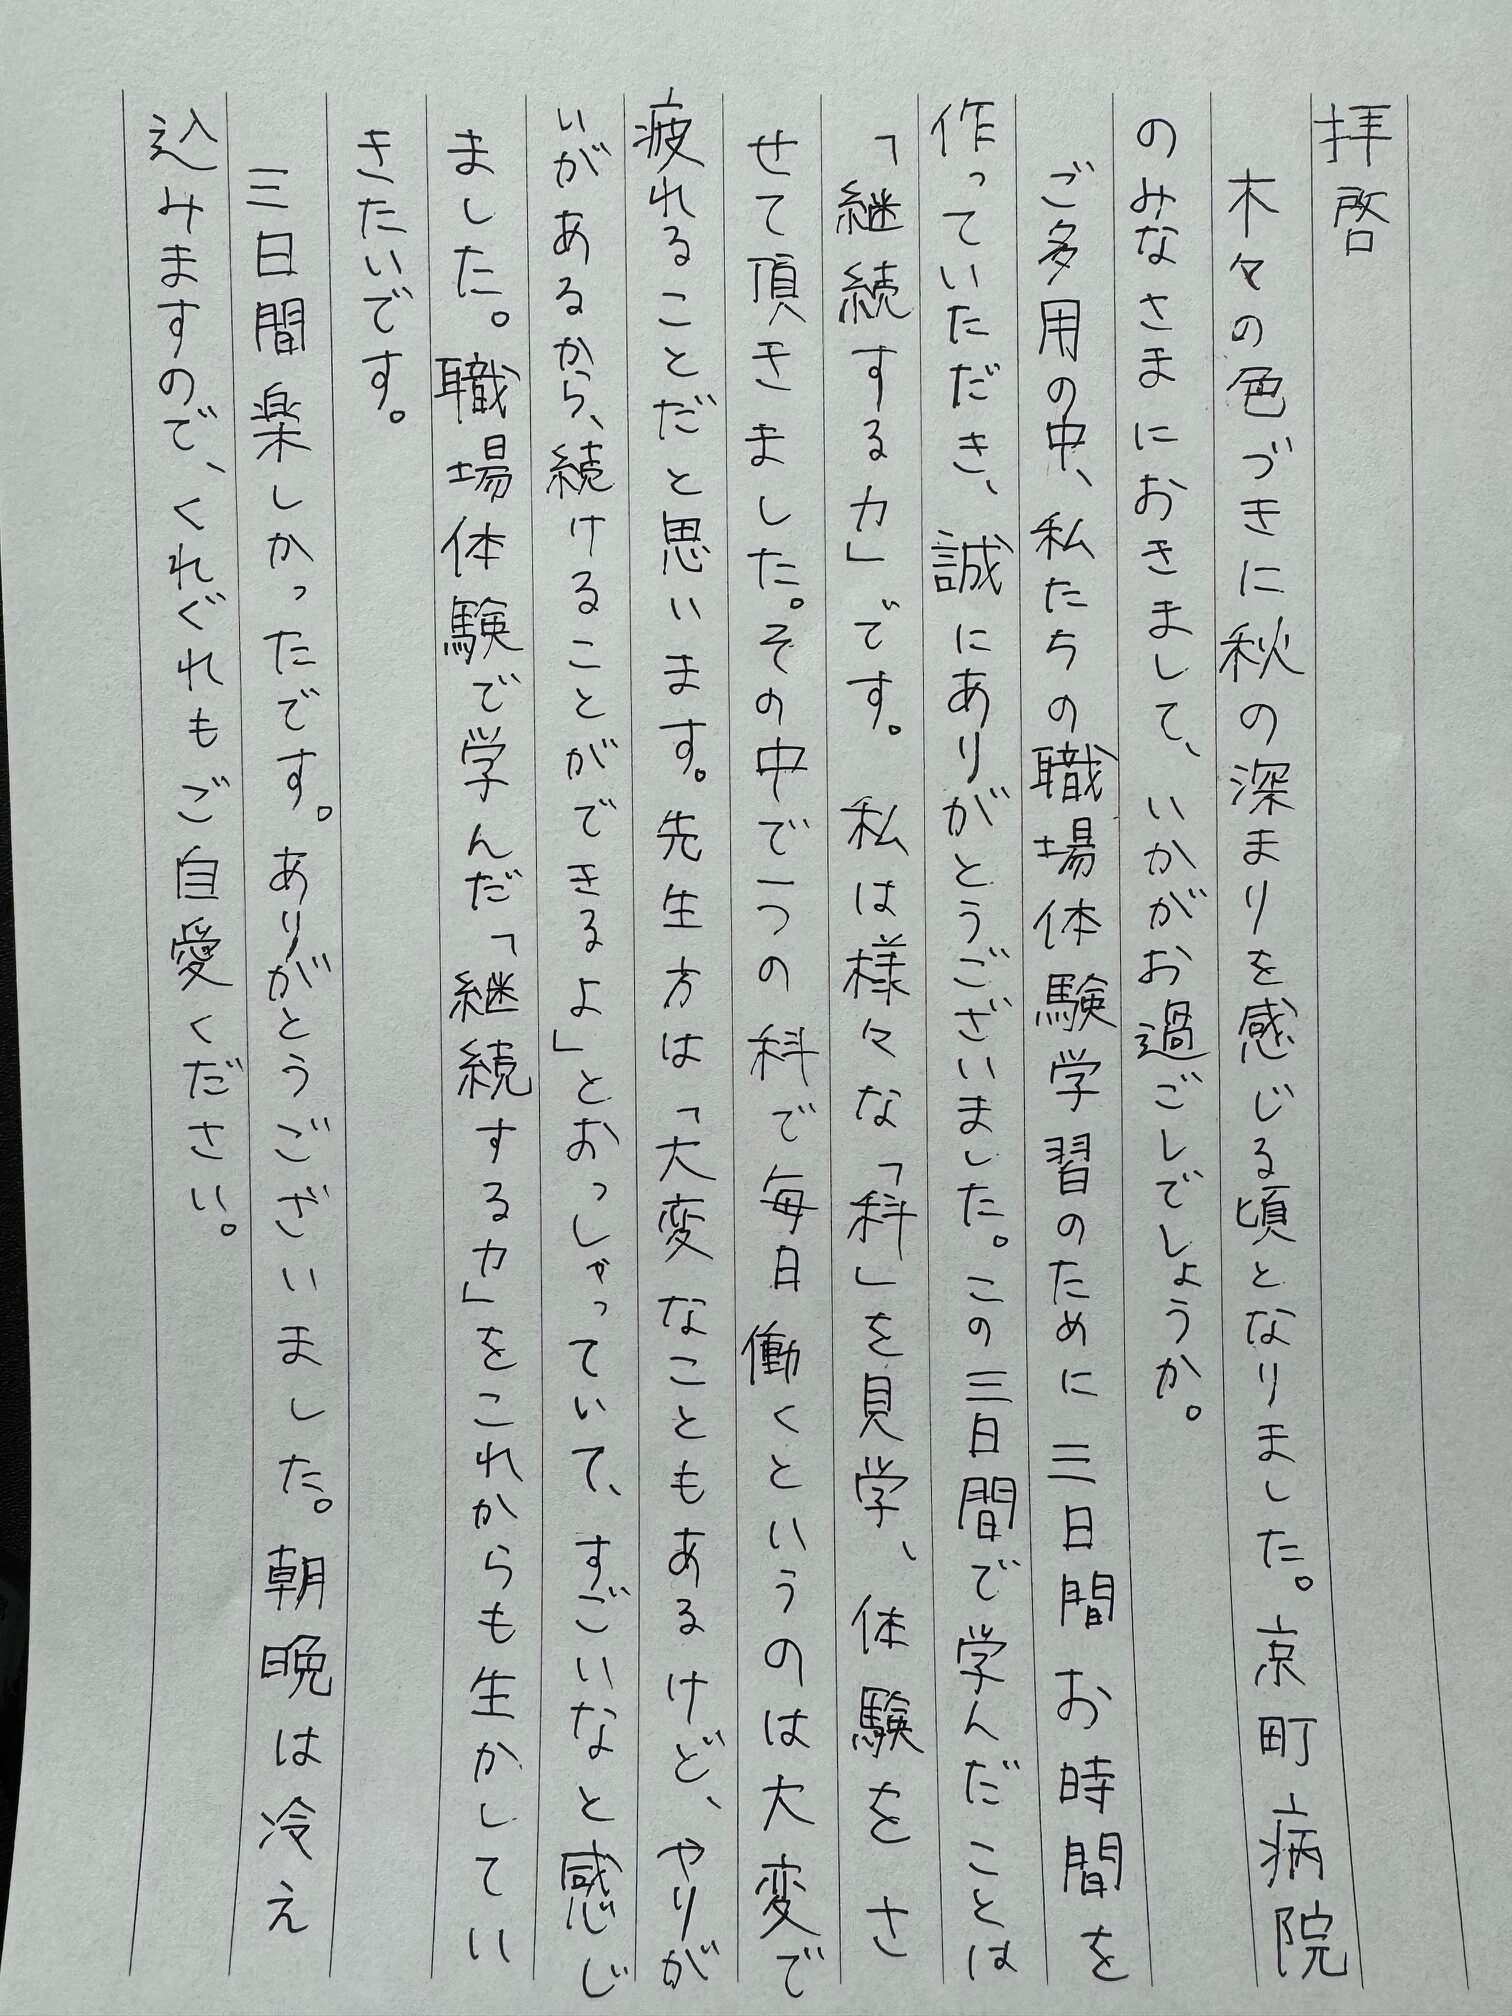 拝啓
木々の色づきに秋の深まりを感じる頃となりました。京町病院
のみなさまにおきまして、いかがお過ごしでしょうか。
ご多用の中、私たちの職場体験学習のために三日間お時間を
作っていただき、誠にありがとうございました。この三日間で学んだことは
「継続する力」です。私は様々な「科」を見学、体験をさ
せて頂きました。その中で一つの科で毎日働くというのは大変で
疲れることだと思います。先生方は「大変なこともあるけど、やりが
いがあるから、続けることができるよ」とおっしゃっていて、すごいなと感じ
ました。職場体験で学んだ「継続する力」をこれからも生かしてい
きたいです。
三日間楽しかったです。ありがとうございました。朝晩は冷え
込みますので、くれぐれもご自愛ください。